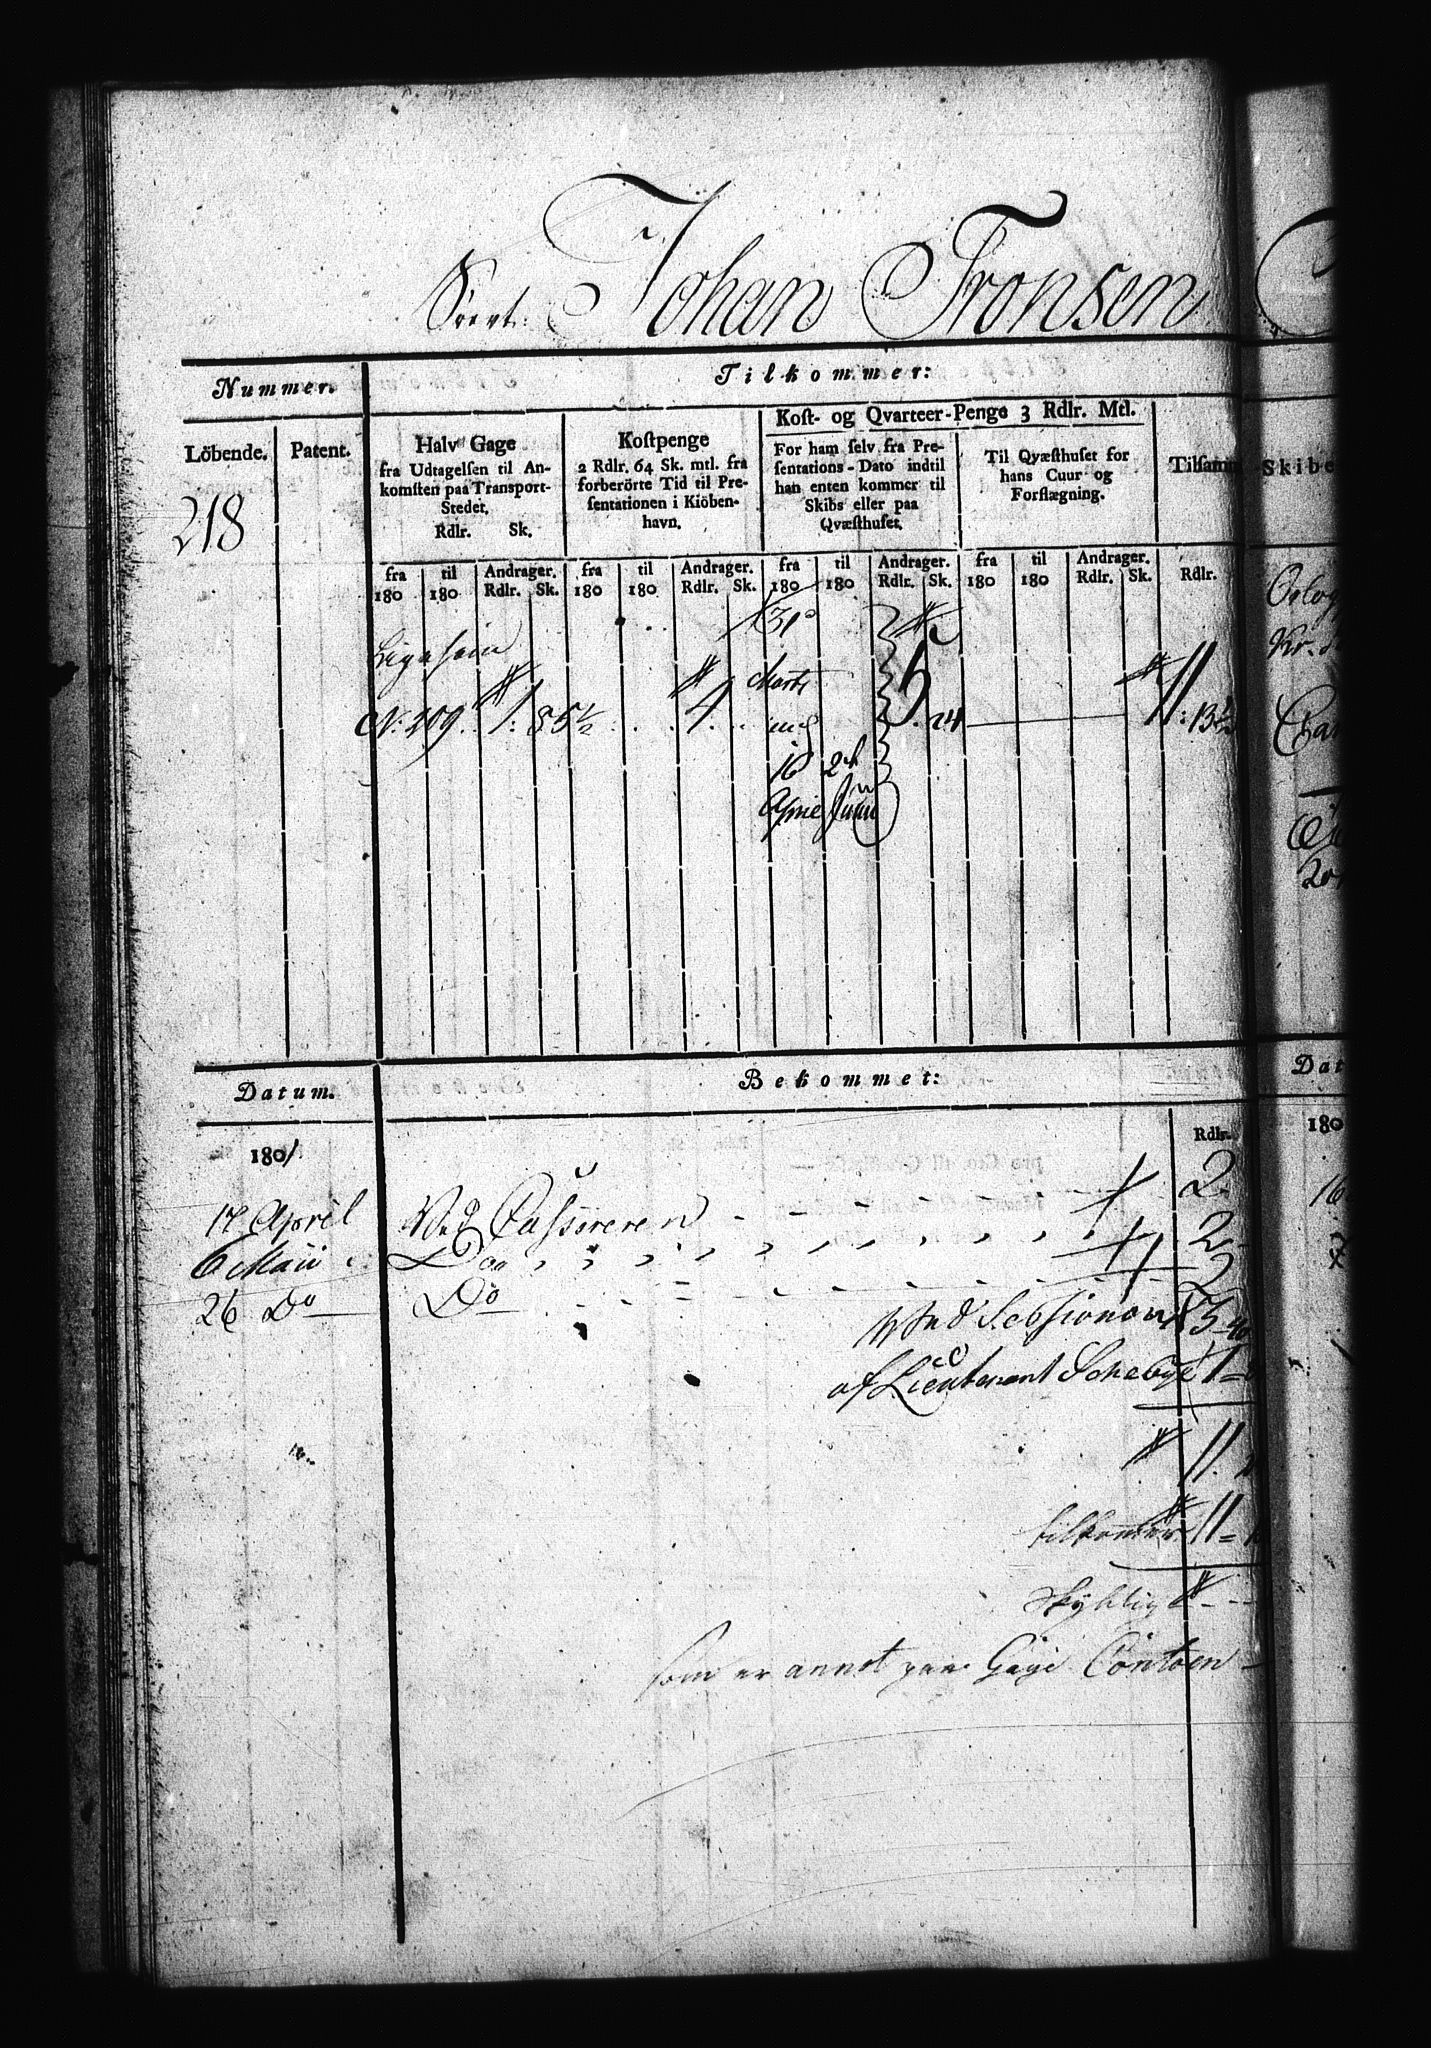 Johan Tronsen
Nummer. Tilkommer:
Löbende. Patent.
Halv Gage
fra Udtagelsen til An-
komsten paa Transport-
Stedet.
Rdlr. Sk.
Kostpenge
2 Rdlr. 64 Sk. mtl. fra
forberörte Tid til Pre-
sentationen i Kiöben-
havn.
Kost- og Qvarteer-Penge 3 Rdlr. Mtl.
For ham selv fra Pre-
sentations-Dato indtil
han enten kommer til
Skibs eller paa
Qvæsthuset.
Til Qvæsthuset for
hans Cuur og
Forflægning.
Skibe
218
fra 180 til 180 Andrager. Rdlr. Sk. fra 180 til 180 Andrager. Rdlr. Sk. fra 180 til 180 Andrager. Rdlr. Sk. fra 180 til 180 Andrager. Rdlr. Sk. Rdlr.
31
Ligesom Marts
No. 209 1. 85½ 4 5. 24 11: 13½
16 2de
April Juni
Datum. Bekommet: Dat
1801 Rdlr. 180
17 April Ved Cassereren 2 16
6 Maii Do 2
26 Do Do 2
Ved Sessionen 3
af Lieutenant 1
11
tilkommer 11
skyldig
som er annot paa Gage Contoen